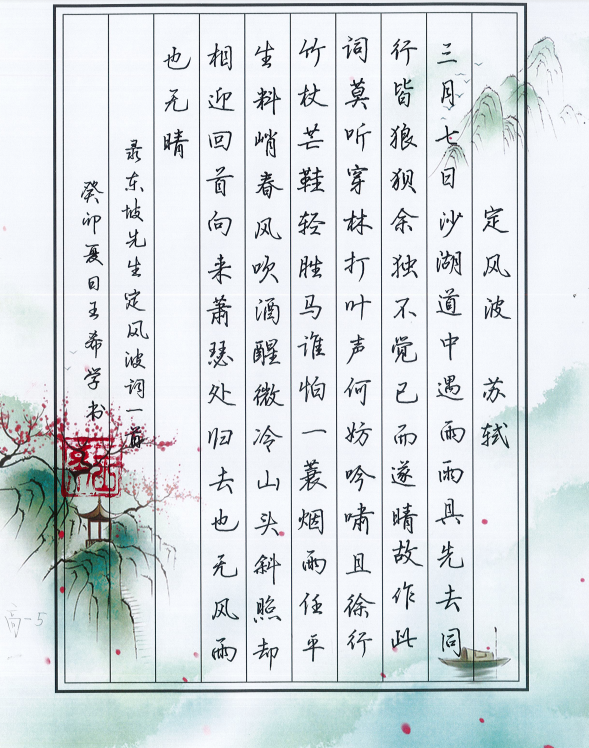 定风波 苏轼
三月七日沙湖道中遇雨雨具先去同
行皆狼狈余独不觉已而遂晴故作此
词莫听穿林打叶声何妨吟啸且徐行
竹杖芒鞋轻胜马谁怕一蓑烟雨任平
生料峭春风吹酒醒微冷山头斜照却
相迎回首向来萧瑟处归去也无风雨
也无晴
录东坡先生定风波词一首
癸卯夏日王希学书
高-5